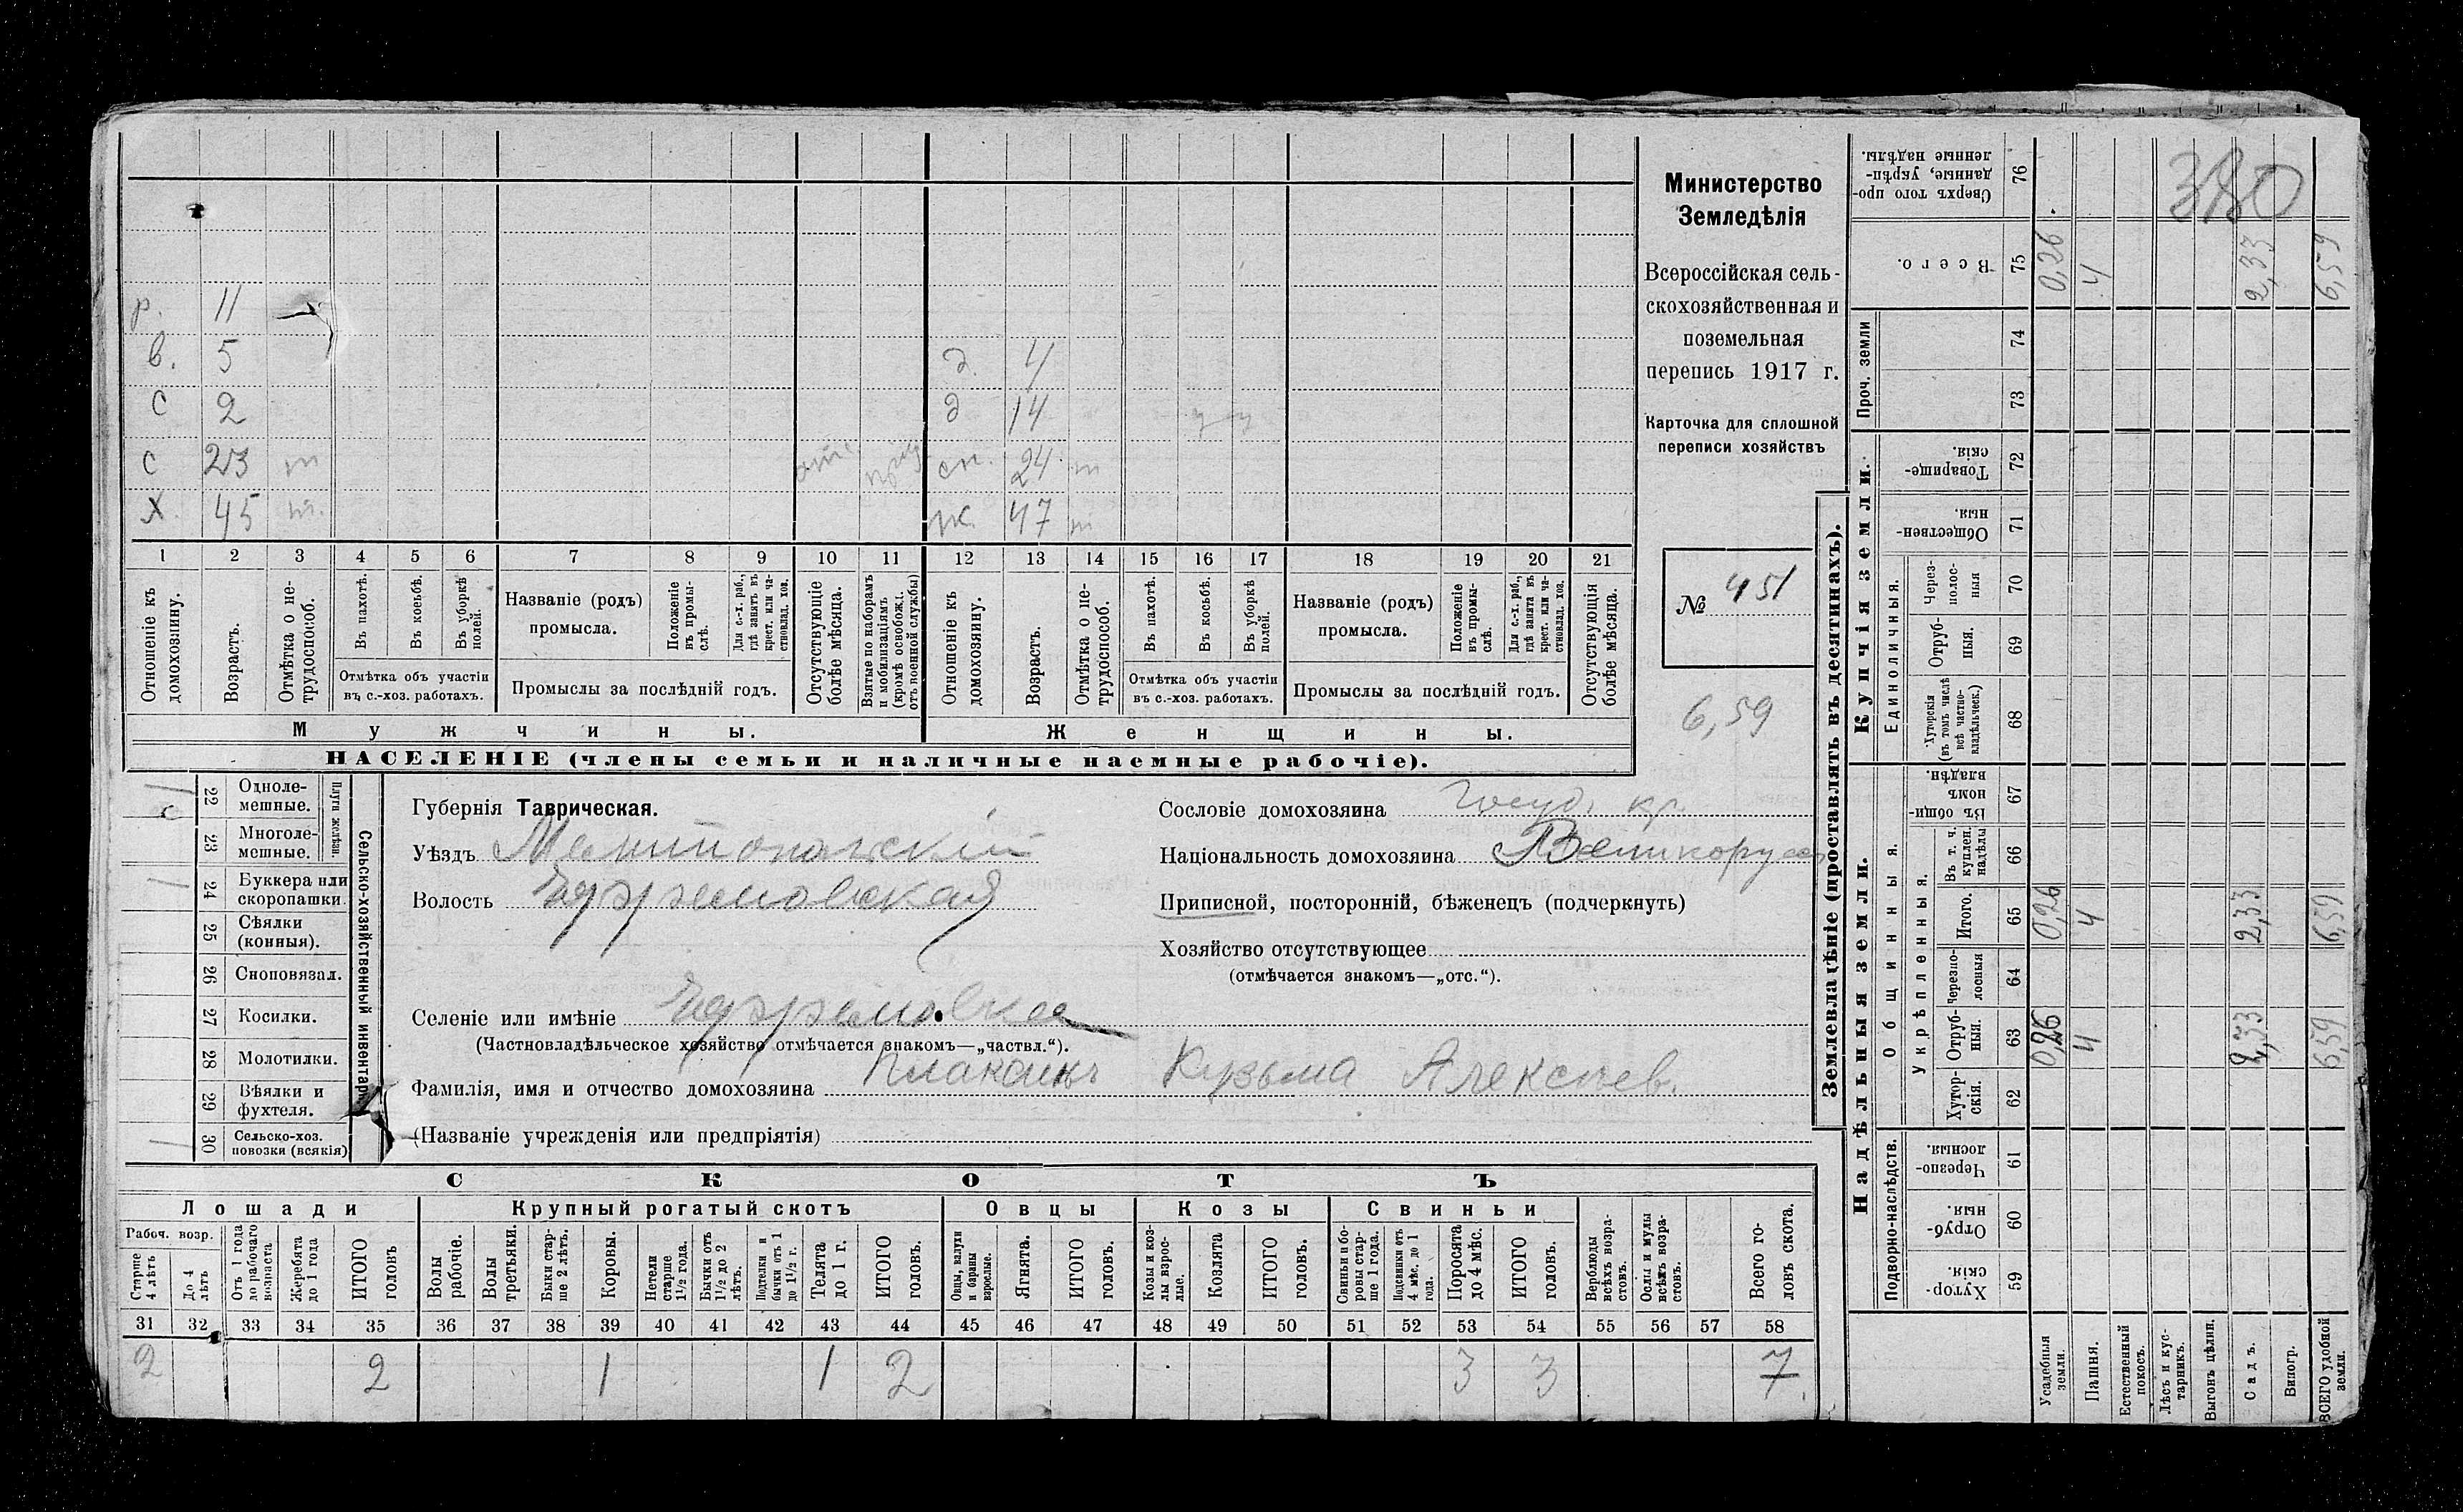 р. 11
в. 5 д. 4
с 2 д 14
с 23 сн. 24
х. 45 ж. 47
1 2 3 4 5 6 7 8 9 10 11 12 13 14 15 16 17 18 19 20 21
Отношеніе къ домохозяину.
Возрастъ.
Отмѣтка о нетрудоспособ.
Въ пахотѣ.
Въ косьбѣ.
Въ уборкѣ полей.
Отмѣтка объ участіи въ с.-хоз. работахъ.
Названіе (родъ) промысла.
Положеніе въ промыслѣ.
Для с.-х. раб., гдѣ занятъ въ крест. или частновлад. хоз.
Промыслы за послѣдній годъ.
Отсутствующіе болѣе мѣсяца.
Взятые по наборамъ и мобилизаціямъ (кромѣ освобожд. отъ военной службы)
Отношеніе къ домохозяину.
Возрастъ.
Отмѣтка о нетрудоспособ.
Въ пахотѣ.
Въ косьбѣ.
Въ уборкѣ полей.
Отмѣтка объ участіи въ с.-хоз. работахъ.
Названіе (родъ) промысла.
Положеніе въ промыслѣ.
Для с.-х. раб., гдѣ занята въ крест. или частновлад. хоз.
Промыслы за послѣдній годъ.
Отсутствующія болѣе мѣсяца.
Мужчины. Женщины.
НАСЕЛЕНІЕ (члены семьи и наличные наемные рабочіе).
Министерство
Земледѣлія
Всероссійская сель-
скохозяйственная и
поземельная
перепись 1917 г.
Карточка для сплошной
переписи хозяйствъ
№ 451
6,59
22 Одноле-мешные.
23 Многоле-мешные.
Плуги желѣзн.
24 Буккера или скоропашки.
25 Сѣялки (конныя).
26 Сноповязал.
27 Косилки.
28 Молотилки.
29 Вѣялки и фухтеля.
30 Сельско-хоз. повозки (всякія)
Сельско-хозяйственный инвентарь
Губернія Таврическая.
Уѣздъ Мелитопольскій
Волость Ефремовская
Селеніе или имѣніе Ефремовка
(Частновладѣльческое хозяйство отмѣчается знакомъ—„частвл.“).
Фамилія, имя и отчество домохозяина Плаксинъ Кузьма Алексѣев.
(Названіе учрежденія или предпріятія)
Сословіе домохозяина Госуд. кр.
Національность домохозяина Великорус
Приписной, посторонній, бѣженецъ (подчеркнуть)
Хозяйство отсутствующее
(отмѣчается знакомъ—„отс.“).
СКОТЪ
Лошади Крупный рогатый скотъ Овцы Козы Свиньи
Рабоч. возр.
Старше 4 лѣтъ
До 4 лѣтъ
Отъ 1 года до рабочаго возраста
Жеребята до 1 года
ИТОГО головъ
Волы рабочіе.
Волы третьяки.
Быки старше 2 лѣтъ.
Коровы.
Нетели старше 1½ года.
Бычки отъ 1½ до 2 лѣтъ.
Подтелки и бычки отъ 1 до 1½ г.
Телята до 1 г.
ИТОГО головъ.
Овцы, валухи и бараны взрослые.
Ягнята.
ИТОГО головъ.
Козы и козлы взрослые.
Козлята
ИТОГО головъ.
Свиньи и боровы старше 1 года.
Подсвинки отъ 4 мѣс. до 1 года.
Поросята до 4 мѣс.
ИТОГО головъ.
Верблюды всѣхъ возрастовъ.
Ослы и мулы всѣхъ возрастовъ.
Всего головъ скота.
31 32 33 34 35 36 37 38 39 40 41 42 43 44 45 46 47 48 49 50 51 52 53 54 55 56 57 58
2 2 1 1 2 3 3 7
Землевладѣніе (проставлять въ десятинахъ).
Купчія земли.
Надѣльныя земли.
380
Сверхъ того проданные, укрѣпленные надѣлы. 76
Всего. 75 0,26 4 2,33 6,59
Проч. земли 74 73
Товарищескія 72
Общественныя 71
Единоличныя.
Черезполосныя 70
Отрубныя. 69
Хуторскія (въ томъ числѣ всѣ частновладѣльческ.) 68
Общинныя.
Въ общинномъ владѣн. 67
Укрѣпленныя.
Въ т. ч. куплен. надѣлы 66
Итого. 65 0,26 4 2,33 6,59
Черезполосныя 64
Отрубныя. 63 0,26 4 2,33 6,59
Хуторскія. 62
Подворно-наслѣдств.
Черезполосныя. 61
Отрубныя. 60
Хуторскія. 59
Усадебныя земли.
Пашня.
Естественный покосъ.
Лѣсъ и кустарникъ.
Выгонъ цѣлин.
Садъ.
Виногр.
ВСЕГО удобной земли.